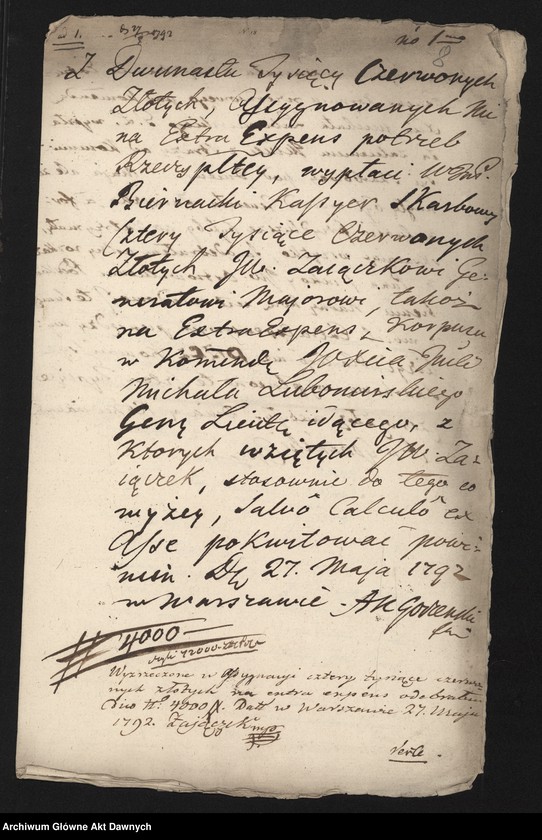 no 1mo
8
Z Dwunastu Tysięcy Czerwonych
Złotych, Assygnowanych Mi
na Extra Expens potrzeb
Rzeczypltey, wypłaci WJmP.
Biernacki Kassyer Skarbowy
Cztery Tysiące Czerwonych
Złotych JW. Zaiączkowi Ge-
nerałowi Majorowi, takoż
na ExtraExpens, Korpusu
w Komendę
Michała Lubomirskiego
Genę Lientę idącego, z
ktorych wziętych JW. Za-
iączek, stosownie do tego co
wyżey, Salvo Calculo ex
Asse pokwitować powi-
nien. Dę 27. Maja 1792
w Warszawie
# 4000
Wyznaczone w Assygnacyi cztery tysiące czerwo-
nych złotych na extra expens odebrałem
4000 Datt w Warszawie 27. Maja
1792. Zajączek mp